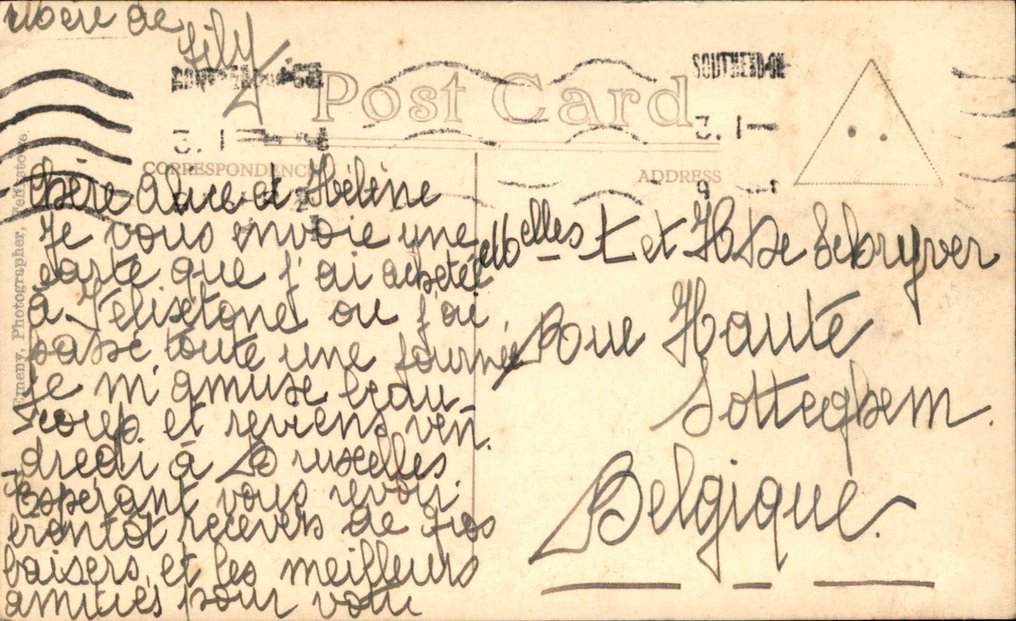 Mère de
Lily
SOUTHEND-ON
Post Card
3. 1
3. 1
CORRESPONDENCE
ADDRESS
Chère Alice et Hélène
Je vous envoie une
carte que j'ai achetée
à Felixstone où j'ai
passé toute une journée
Je m'amuse beau-
coup et reviens ven-
dredi à Bruxelles
Espérant vous revoir
bientôt recevez de gros
baisers et les meilleurs
amitiés pour votre
Melles E et H De Schryver
Rue Haute
Sotteghem.
Belgique.
Emeny, Photographer, Felixstowe